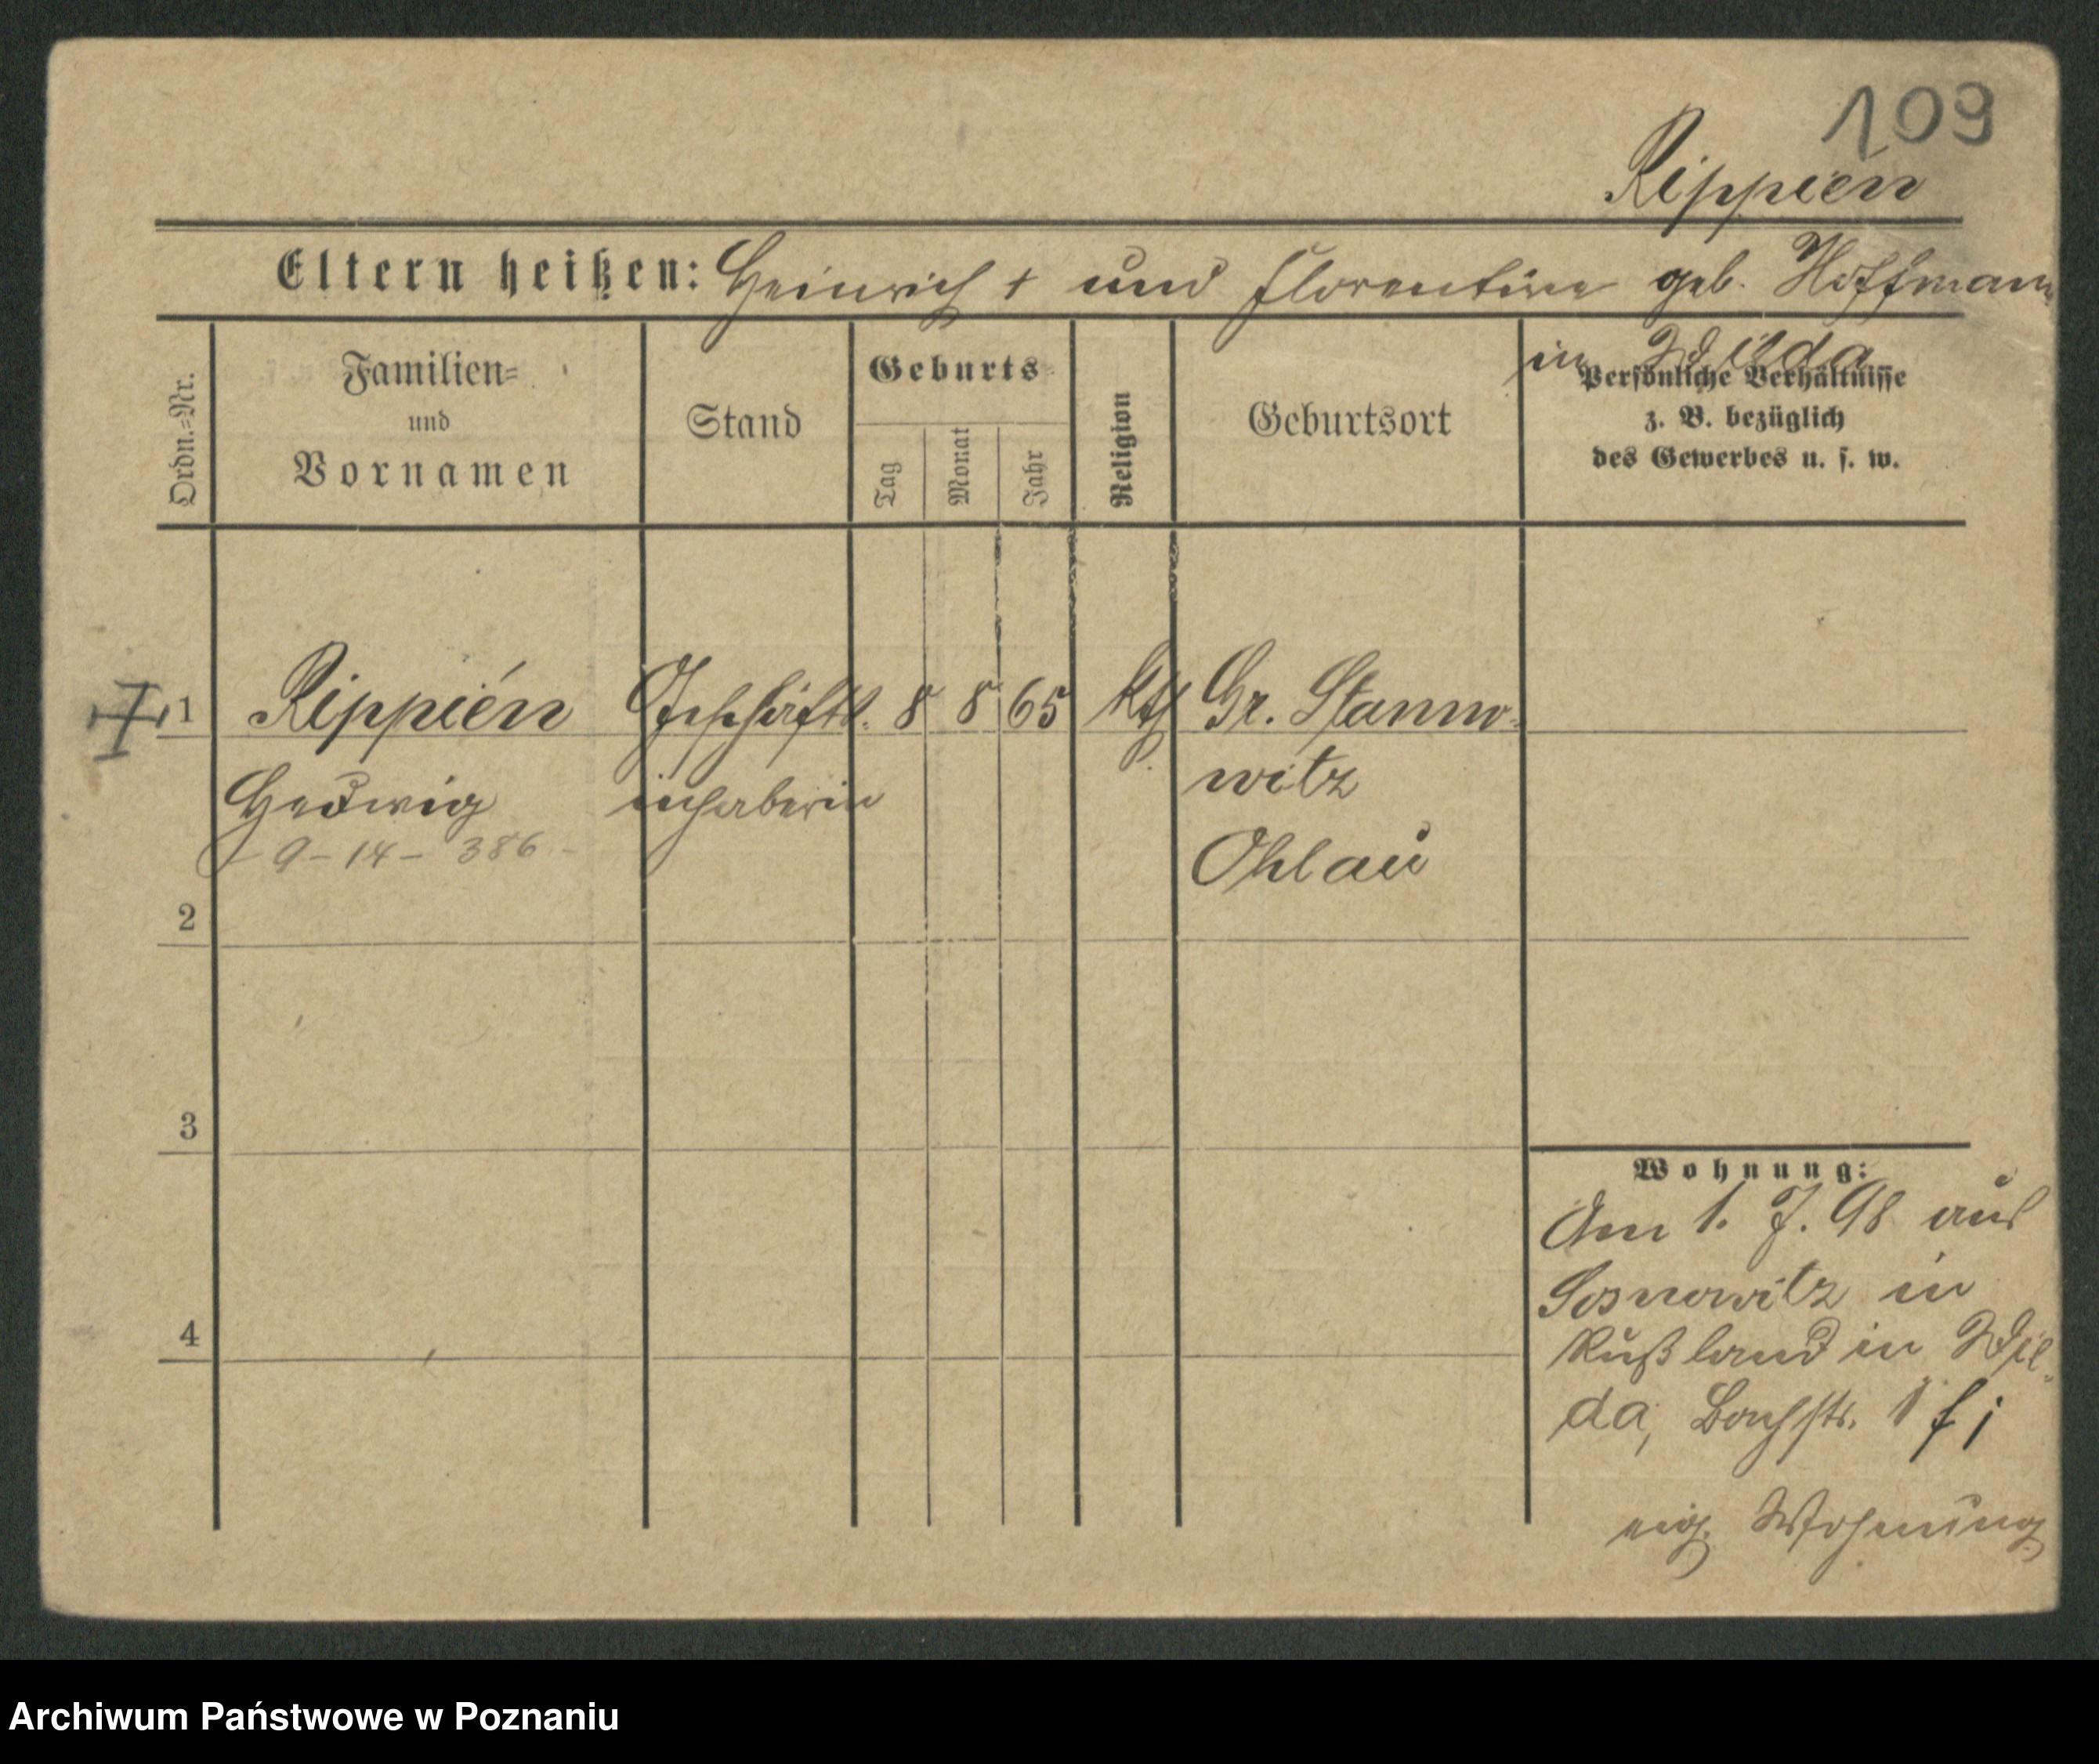 109
Rippién
Eltern heißen: Heinrich † und Florentine geb. Hoffmann
in Wilda
Ordn.=Nr.
Familien=
und
Vornamen
Stand
Geburts=
Tag
Monat
Jahr
Religion
Geburtsort
Persönliche Verhältnisse
z. B. bezüglich
des Gewerbes u. s. w.
1 Rippién Geschäfts. 8 8 65 kth Gr. Stanno-
witz
Hedwig inhaberin
Ohlau
9-14-386-
2
3
4
Wohnung:
Am 1. 7. 98 aus
Sosnowitz in
Rußland in Wil-
da, Bachstr. 1
eig. Wohnung
Archiwum Państwowe w Poznaniu